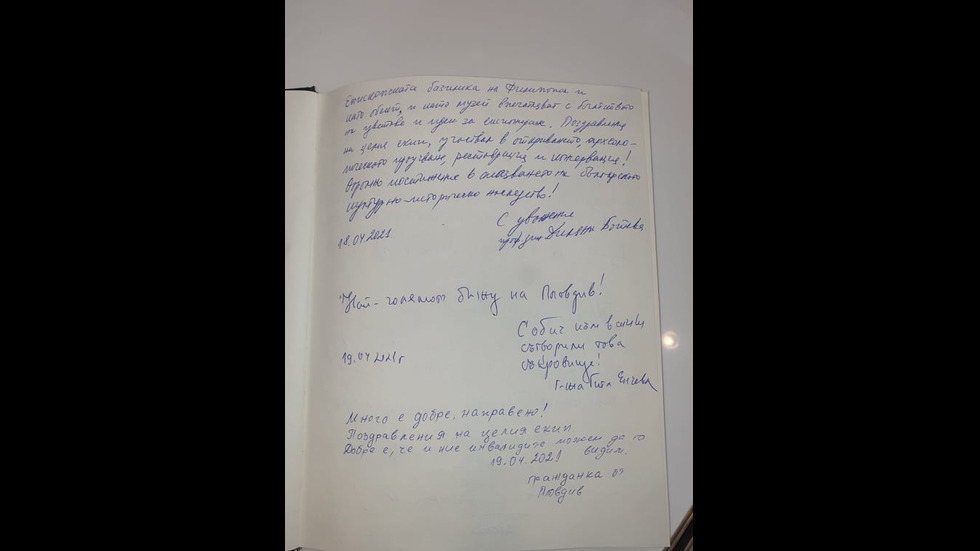 Епископската базилика на Филипопол и
като обект, и като музей впечатляват с богатство
на цветове и идеи за експониране. Поздравления
на целия екип, участвал в откриването, археоло-
гическото проучване, реставрация и консервация!
Огромно постижение в опазването на българското
културно-историческо наследство!
С уважение
18.04.2021
проф. Диляна Ботева
Най-големият бижу на Пловдив!
С обич към всички
сътворили това
19.04.2021г
съкровище!
Г-жа Енчева
Много е добре, направено!
Поздравления на целия екип
Добре е, че и ние инвалидите можем да го
19.04.2021 видим.
гражданка от
Пловдив